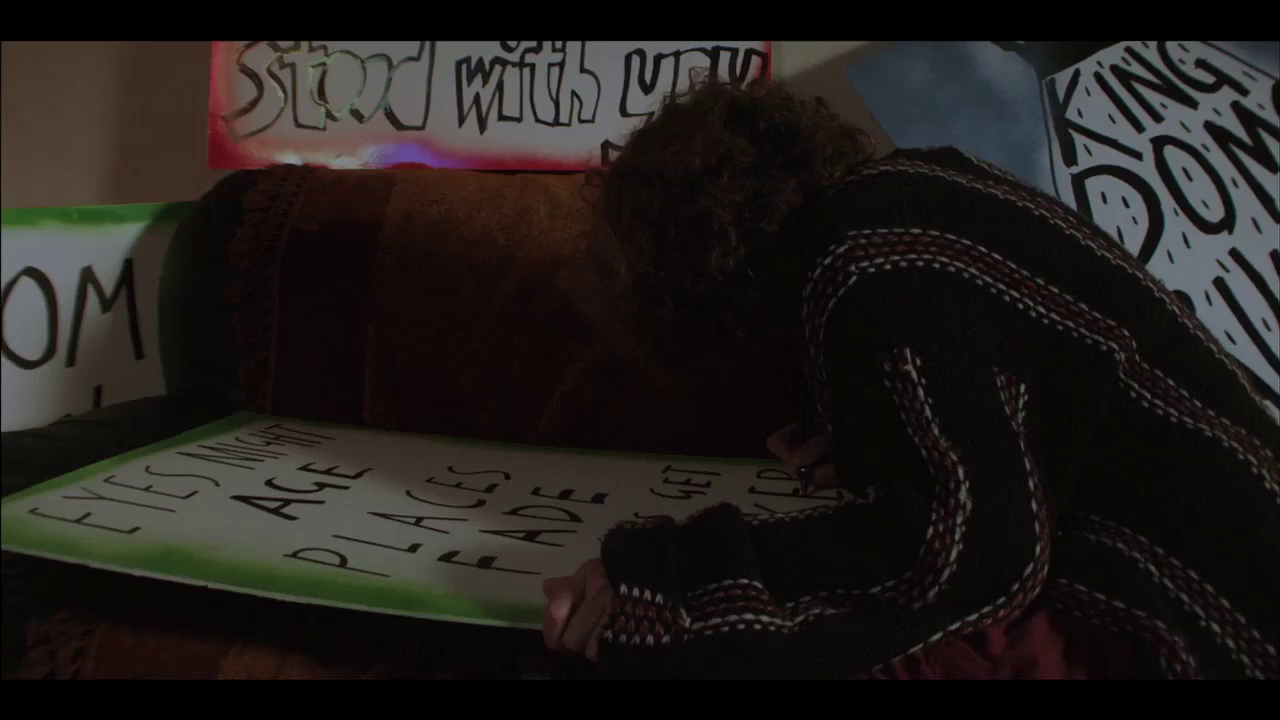 Stood with you
KING
DOMS
OM
EYES MIGHT
AGE
PLACES
FADE
GET